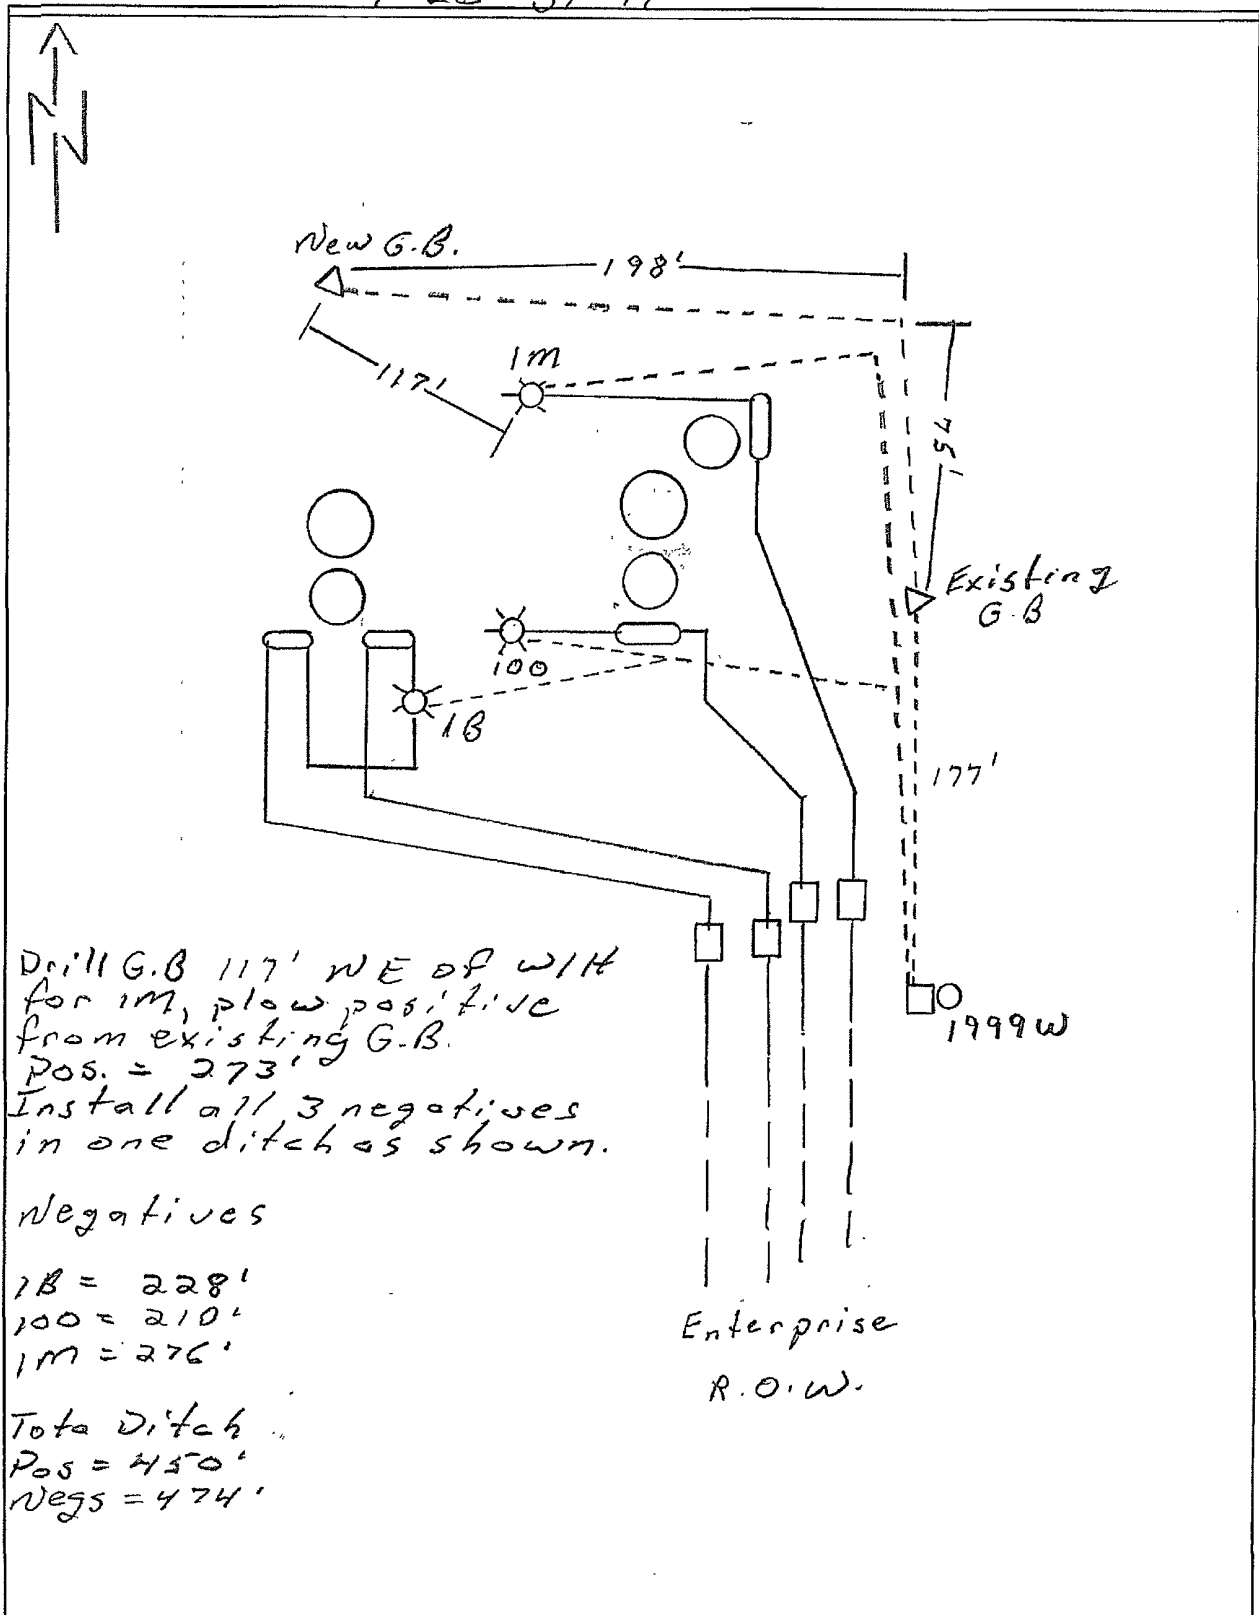 N
New G.B.
198'
117'
1M
75'
Existing
G.B
100
1B
177'
1999W
Drill G.B 117' NE of W/H
for 1M, plow positive
from existing G.B.
Pos. = 273'
Install all 3 negatives
in one ditch as shown.
Negatives
1B = 228'
100 = 210'
1M = 276'
Tota Ditch
Pos = 450'
Negs = 474'
Enterprise
R.O.W.